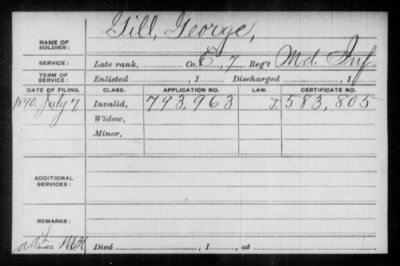 Gill, George,
NAME OF SOLDIER:
SERVICE: Late rank, Co. E, 7 Reg't Md. Inf.
TERM OF SERVICE: Enlisted , 1 Discharged , 1
DATE OF FILING. CLASS. APPLICATION NO. LAW. CERTIFICATE NO.
1890 July 7 Invalid, 793,963 J. 583,805
Widow,
Minor,
ADDITIONAL SERVICES:
REMARKS:
Died , 1 , at